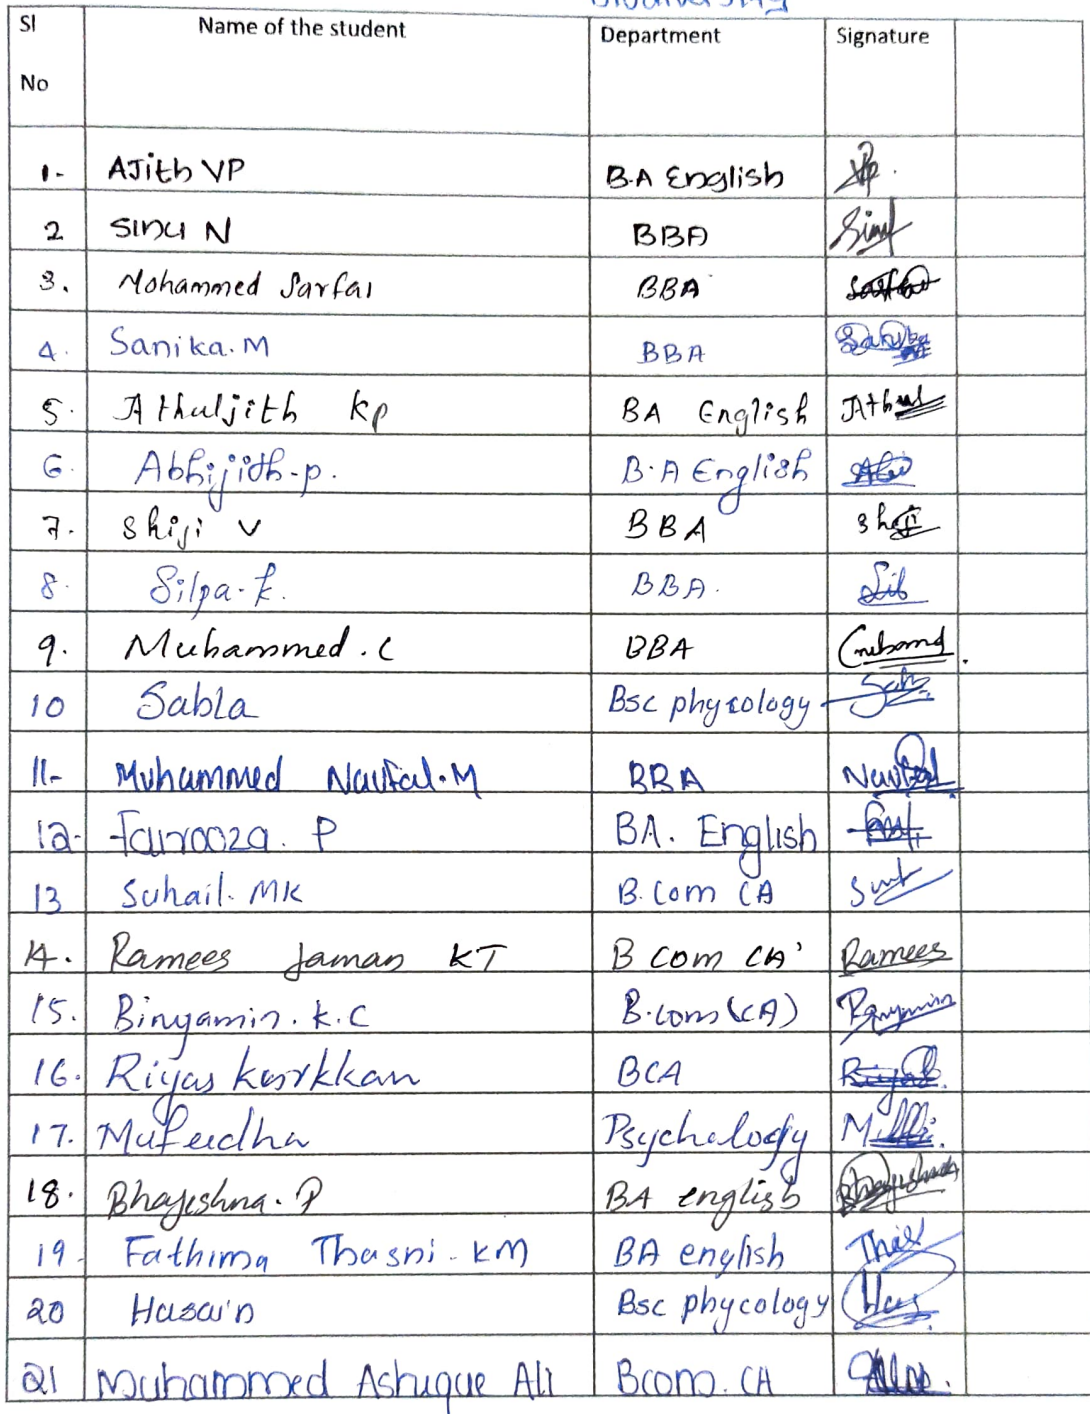 Biodiversity
Sl No Name of the student Department Signature
1- AJith VP B.A English
2 Sinu N BBA Sinu
3. Mohammed Sarfas BBA
4. Sanika.M BBA Sanika
5. Athuljith Kp BA English Athul
6. Abhijith-p. B.A English Abi
7. Shiji V BBA Shiji
8. Silpa-k. BBA. Sil
9. Muhammed.C BBA
10 Sabla Bsc phycology Sab
11- Muhammed Naufal.M BBA Naufal
12- Fairooza. P BA. English
13 Suhail. MK B.Com CA
14. Ramees Jaman KT B com CA Ramees
15. Binyamin.K.C B.com(CA) Binyamin
16. Riyas kurkkan BCA Riyas
17. Mufeedha Psychology
18. Bhajeshna.P BA english Bhajeshna
19 Fathima Thasni.KM BA english Thas
20 Husain Bsc phycology Hus
21 Muhammed Ashique Ali Bcom. CA